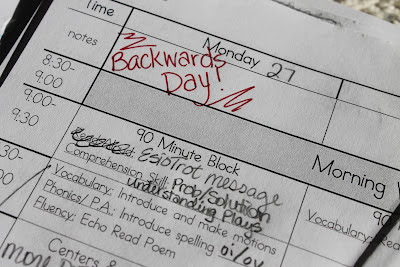 Time
Monday 27
notes
Backwards
Day!
8:30-
9:00
9:00-
9:30
90 Minute Block
Morning
EsioTrot message
Comprehension Skill: Prob/Solution
understanding Plays
Vocabulary: Introduce and make motions
Phonics/ P.A.: Introduce spelling oi/oy
Fluency: Echo Read Poem
Centers
90
Vocabulary: Re
:30-
more